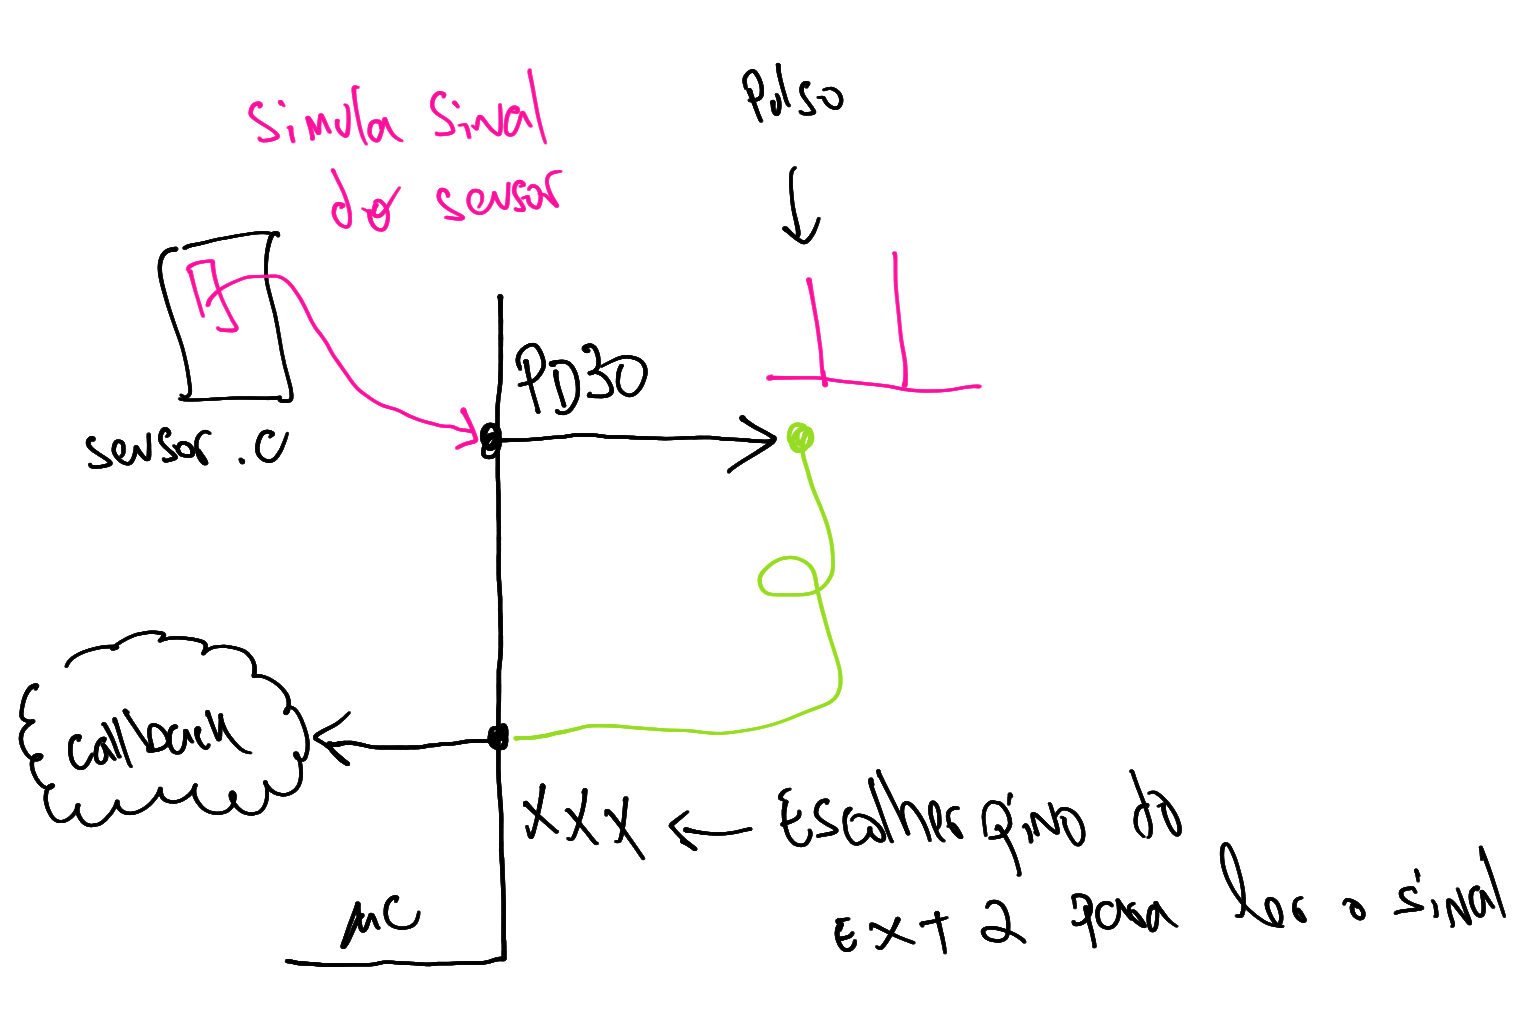 Simula Sinal
do sensor
Pulso
PD30
sensor.c
callback
XXX
Escolher pino do
EXT 2 para ler o sinal
μC